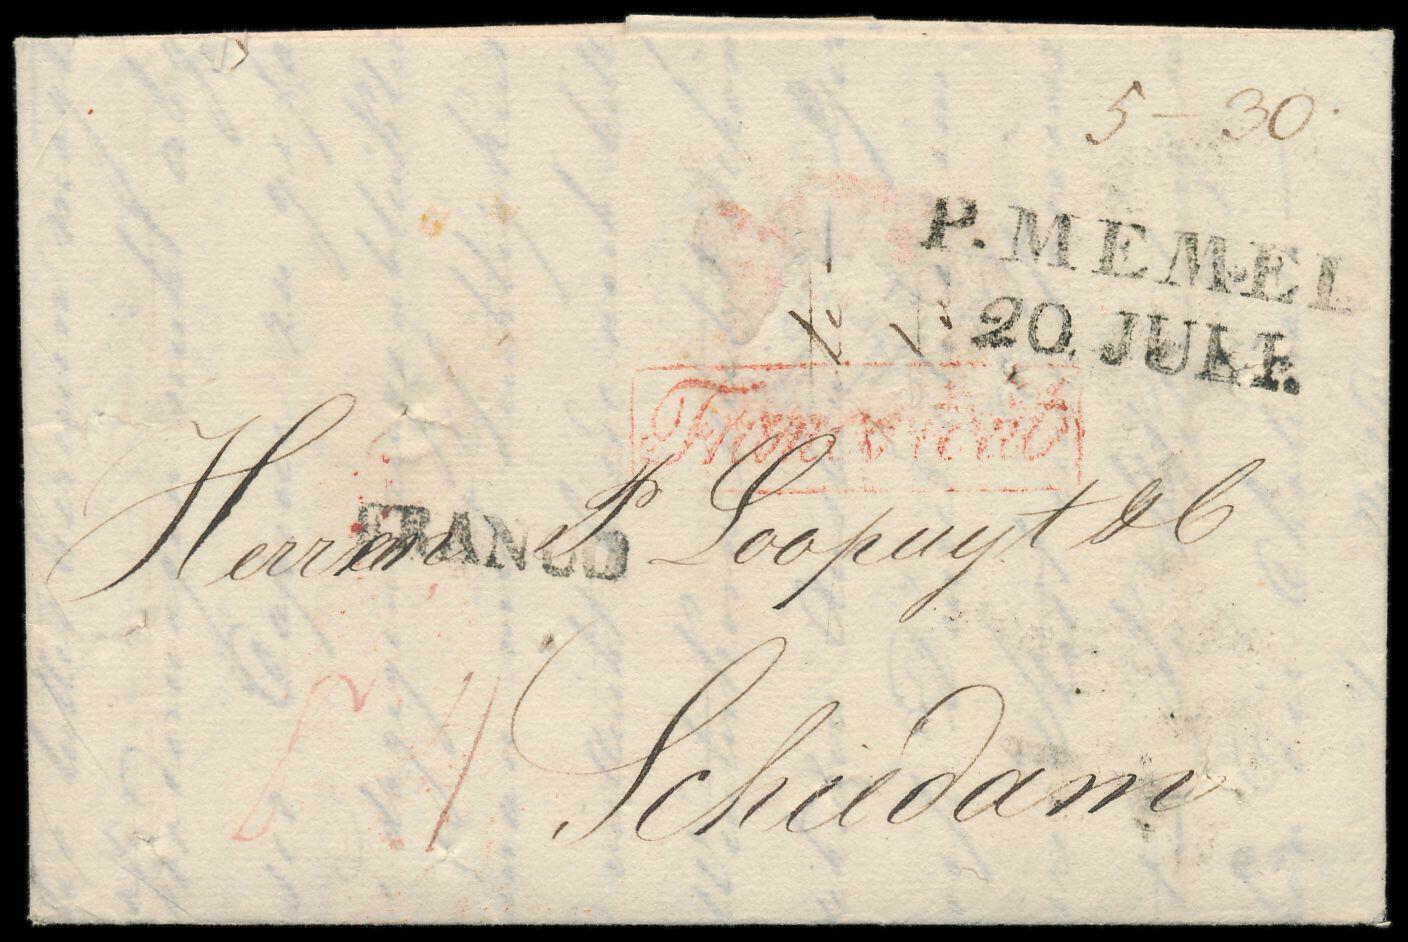 5 – 30.
P. MEMEL
20. JULI.
Franco
FRANCO
Herren P Loopuyt & C
Schiedam